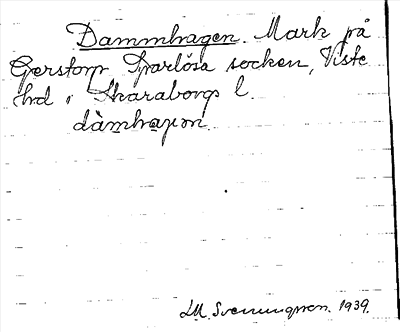 Dammhagen. Mark på
Gerstorp Sparlösa socken, Viste
hd i Skaraborgs l.
dàmhaɡən.
M. Svenungsson. 1939.